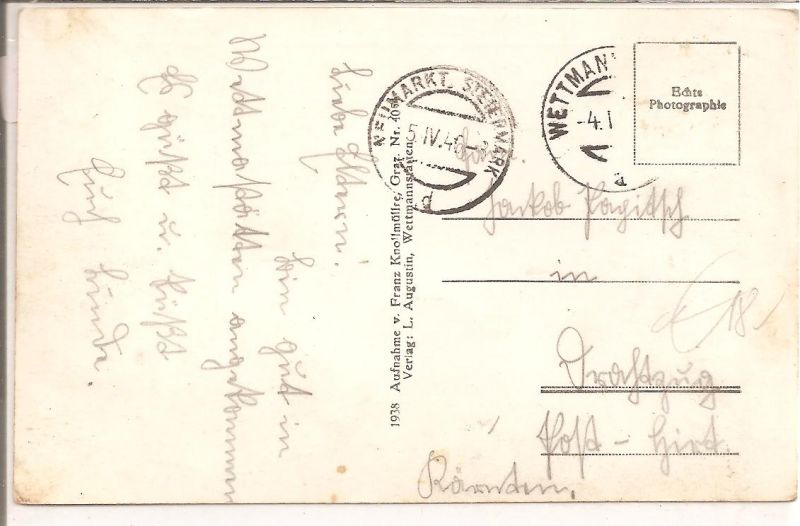 Liebe Eltern.
Bin gut in
Wettmastätten angekommen
Es grüßt u. küßt
Euch
1938 Aufnahme v. Franz Knollmüller, Graz. Nr. 405
Verlag: L. Augustin, Wettmannstätten
NEUMARKT, STEIERMARK
5.IV.40
d
WETTMAN
-4.I
a
Echte
Photographie
Jakob Pagitsch
in
Drahtzug
Post - Hirt.
Kärnten.
18